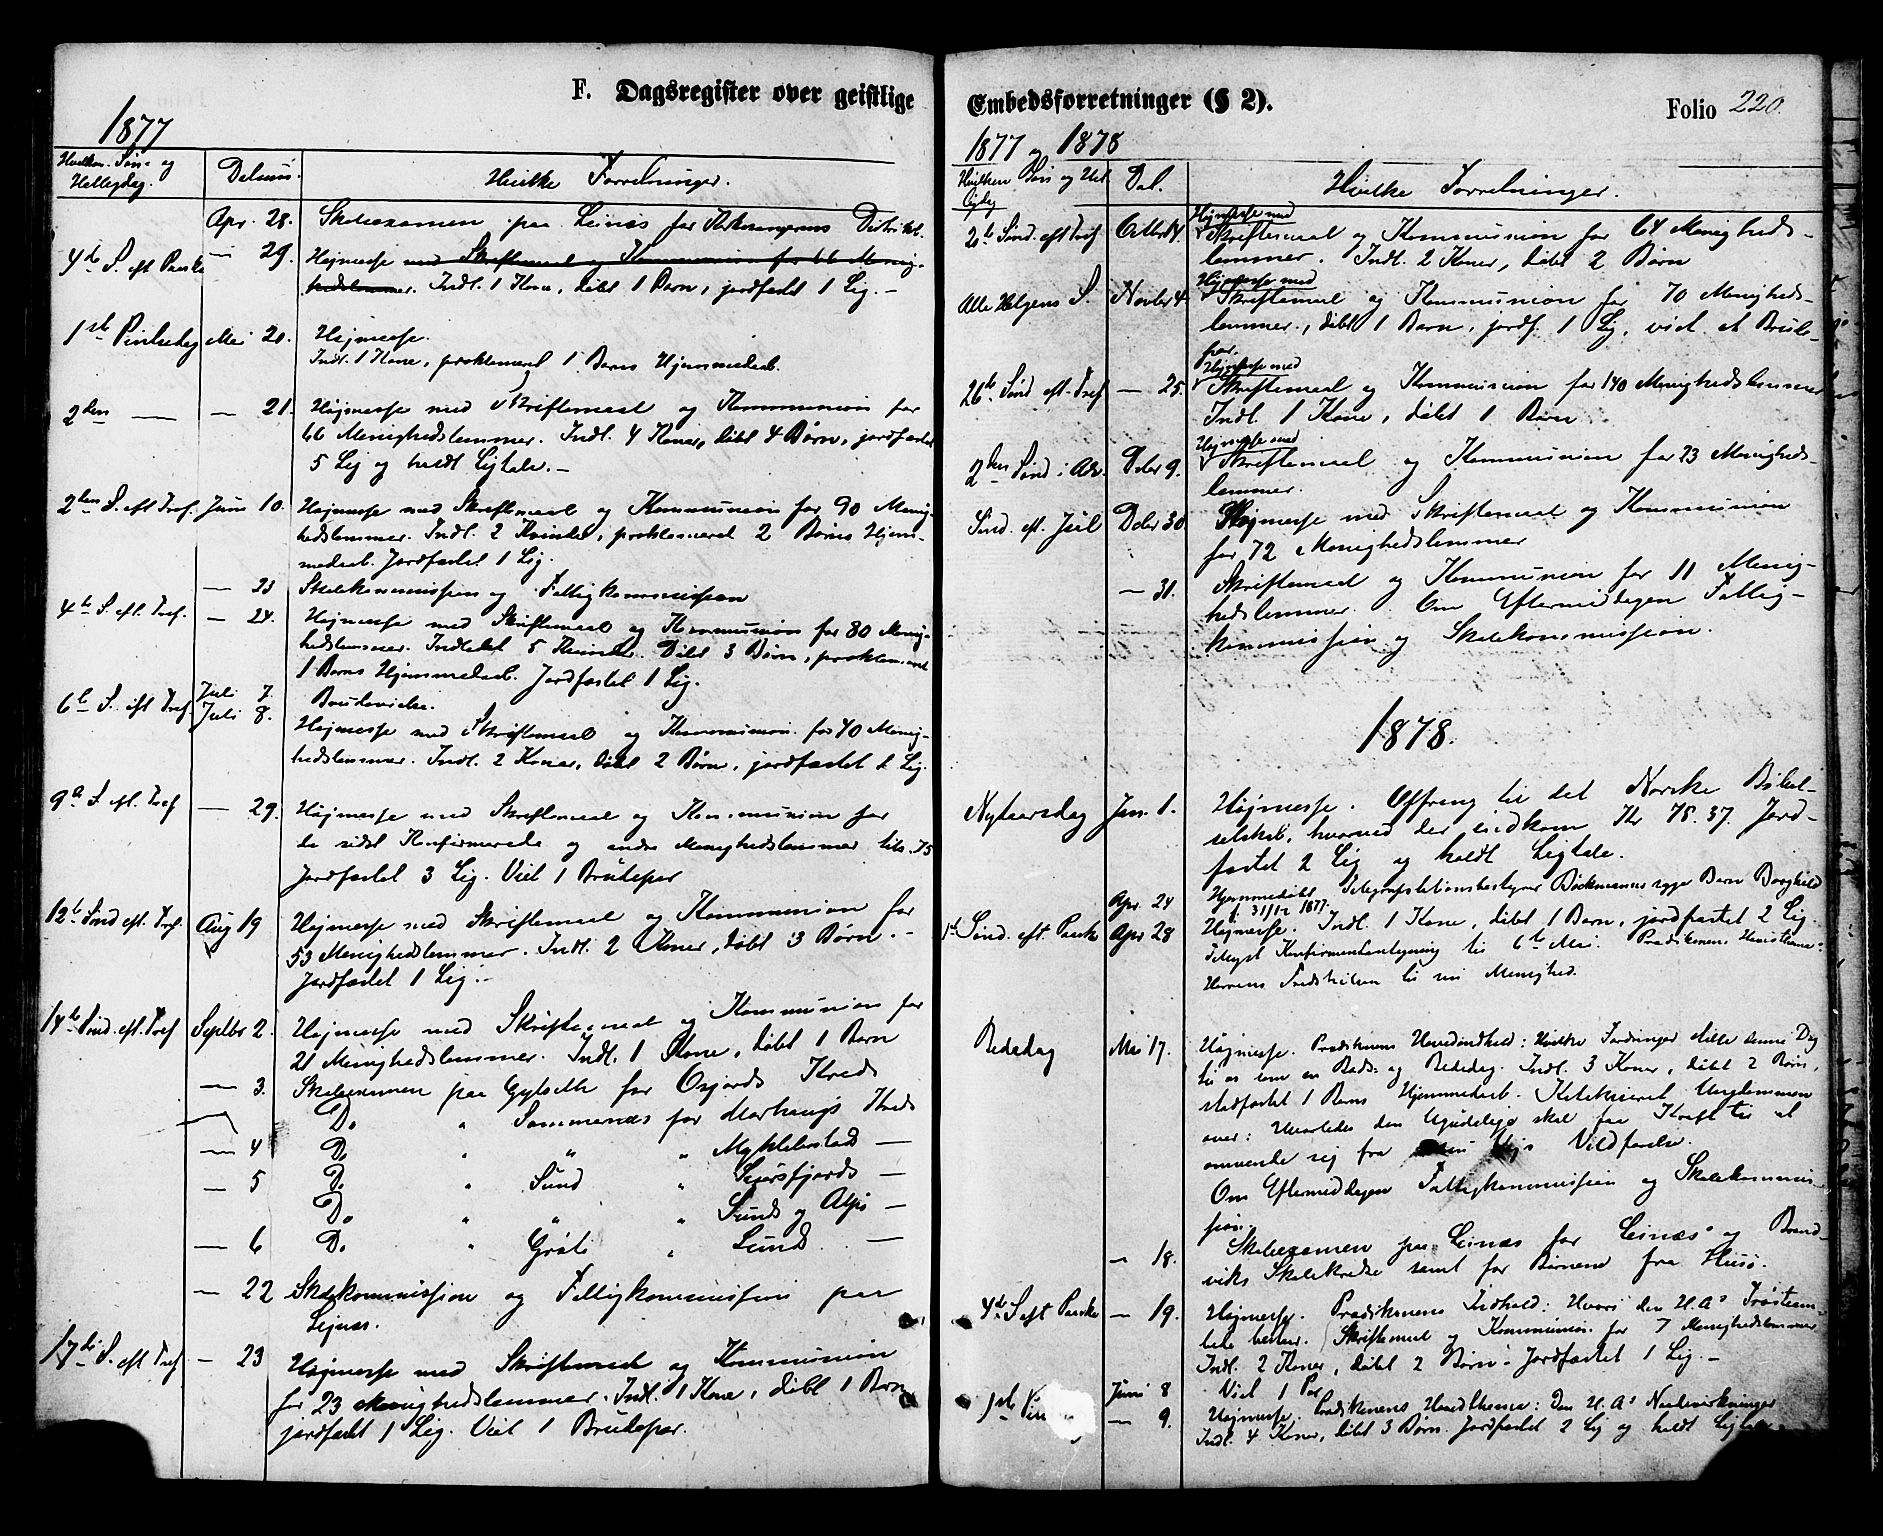 F. Dagsregister over geistlige
1877
Hvilken Søn- og Helligdag. Datum. Hvilke Forretninger.
Apr. 28. Skoleexamen paa Leines for Distrikt.
4de S. eft Paaske — 29. Høimesse med Skriftemaal og Kommunion for 66 Menig-
hedslemmer. Indl. 1 Kone, døbt 1 Barn, jordfæstet 1 Lig. —
1ste Pintsedag Mai 20. Høimesse.
Indl. 1 Kone, proklameret 1 Barns Hjemmedaab.
2den — — 21. Høimesse med Skriftemaal og Kommunion for
66 Menighedslemmer. Indl. 4 Koner, døbt 4 Børn, jordfæstet
5 Lig og holdt Ligtale. —
2den S. eft Tref. Juni 10. Høimesse med Skriftemaal og Kommunion for 90 Menig-
hedslemmer. Indl. 2 Kvinder, proklameret 2 Børns Hjem-
medaab. Jordfæstet 1 Lig.
— 23 Skolekommission og Fattigkommission
4de S. eft. Tref. — 24. Høimesse med Skriftemaal og Kommunion for 80 Menig-
hedslemmer. Indledet 5 Kvinder. Døbt 3 Børn, proklameret
1 Barns Hjemmedaab. Jordfæstet 1 Lig.
Juli 7. Brudevielse.
6te S. eft Tref Juli 8. Høimesse med Skriftemaal og Kommunion for 40 Menig-
hedslemmer. Indl. 2 Koner, døbt 2 Børn, jordfæstet Lig.
9de S. eft. Tref — 29. Høimesse med Skriftemaal og Kommunion for
de sidst Konfirmerede og andre Menighedslemmer tils. 75
Jordfæstet 3 Lig. Viet 1 Brudepar
12te Sønd eft. Tref. Aug 19 Høimesse med Skriftemaal og Kommunion for
53 Menighedslemmer. Indl. 2 Koner, døbt 3 Børn. —
Jordfæstet 1 Lig. —
14de Sønd. eft. Tref Septbr 2. Høimesse med Skriftemaal og Kommunion for
21 Menighedslemmer. Indl. 1 Kone, døbt 1 Barn
— 3. Skoleexamen paa Gylseth for Osfjords Kreds
Do " Sommernæs for Kreds
— 4 Do " " " Myklebostad —
— 5 Do " Sund " Leirsfjords —
Do " " " Sunds og —
— 6 Do " " Lunds —
— 22 Skolekommission og Fattigkommission paa
Leinæs.
17de S. eft Tref — 23 Høimesse med Skriftemaal og Kommunion
for 23 Menighedslemmer. Indl. 1 Kone, døbt 1 Barn,
jordfæstet 1 Lig. Viet 1 Brudepar.
Embedsforretninger (§ 2).
Folio 220.
1877 og 1878
Hvilken Søn og Hel- Dat. Hvilke Forretninger.
ligdag
Høimesse med
Sønd. eft Tref Octbr 14. Skriftemaal og Kommunion for 64 Menigheds-
lemmer. Indl. 2 Koner, døbt 2 Børn
Høimesse med
Alle Helgens S. Novbr 4. Skriftemaal og Kommunion for 70 Menigheds-
lemmer, døbt 1 Barn, jordf. 1 Lig, viet et Brude-
par.
Høimesse med
26de Sønd eft. Tref — 25. Skriftemaal og Kommunion for 140 Menighedslemmer
Indl. 1 Kone, døbt 1 Barn
Høimesse med
2den Sønd i Adv. Dcbr 9. Skriftemaal og Kommunion for 23 Menigheds-
lemmer.
Sønd. eft. Jul Dcbr 30 Høimesse med Skriftemaal og Kommunion
for 72 Menighedslemmer
— 31. Skriftemaal og Kommunion for 11 Menig-
hedslemmer. Om Eftermiddagen Fattig-
kommission og Skolekommission.
1878.
Nytaarsdag Jan. 1. Høimesse. Offring til det Norske Bibel-
selskab, hvorved der indkom Kr 75.37. Jord-
fæstet 2 Lig og holdt Ligtale.
Apr. 24 Hjemmedøbt Telegrafstationsbestyrer Bøckmanns syge Barn Borghild
f. 31/12 1877.
1ste Sønd. eft. Paaske Apr 28 Høimesse. Indl. 1 Kone, døbt 1 Barn, jordfæstet 2 Lig.
Tillyst Konfirmantantegning til 6te Mai. Prædikenens Hovedtanke:
Herrens Fredshilsen til sin Menighed.
Bededag Mai 17. Høimesse. Prædikenens Hovedindhold: Hvilke Fordringer stiller denne Dag
til os som en Bods- og Bededag. Indl. 3 Koner, døbt 2 Børn,
stadfæstet 1 Barns Hjemmedaab. Katekiseret Ungdommen
over: Hvorledes den Ugudelige skal faa Kraft til at
omvende sig fra sin Veis Vildfarelse.
Om Eftermiddagen Fattigkommission og Skolekommis-
sion.
— 18. Skoleexamen paa Leinæs for Leinæs og Brand-
viks Skolekredse samt for Børnene fra Husø.
4de S eft Paaske — 19. Høimesse. Prædikenens Indhold: Hvori den H. A's Trøsteem-
bede bestaar. Skriftemaal og Kommunion for 7 Menighedslemmer
Indl. 2 Koner, døbt 2 Børn. Jordfæstet 1 Lig. —
Juni 8 Viet 1 Par
1ste Pin — 9. Høimesse. Prædikenens Hovedtanke: Den H. A's Naadevirkninger
Indl. 4 Koner, døbt 3 Børn. Jordfæstet 2 Lig og holdt Ligtale